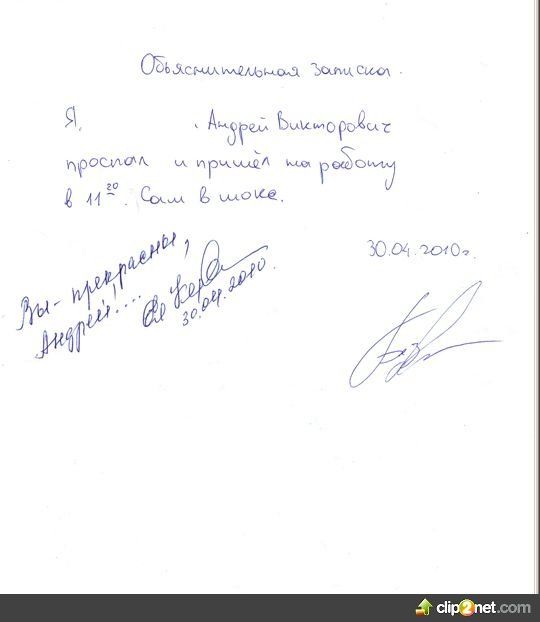 Объяснительная записка.
Я, . Андрей Викторович
проспал и пришёл на работу
в 11 20. Сам в шоке.
30.04.2010г.
Вы - прекрасны,
Андрей!...
30.04.2010.
clip2net.com